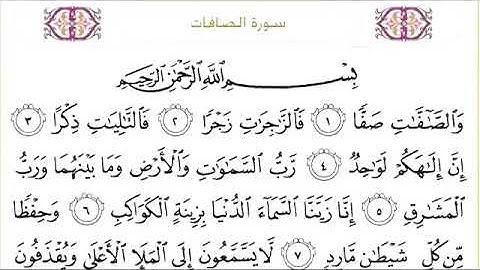 سورة الصافات
بِسْمِ اللَّهِ الرَّحْمَٰنِ الرَّحِيمِ
وَالصَّافَّاتِ صَفًّا ١ فَالزَّاجِرَاتِ زَجْرًا ٢ فَالتَّالِيَاتِ ذِكْرًا ٣
إِنَّ إِلَٰهَكُمْ لَوَاحِدٌ ٤ رَبُّ السَّمَاوَاتِ وَالْأَرْضِ وَمَا بَيْنَهُمَا وَرَبُّ
الْمَشَارِقِ ٥ إِنَّا زَيَّنَّا السَّمَاءَ الدُّنْيَا بِزِينَةٍ الْكَوَاكِبِ ٦ وَحِفْظًا
مِنْ كُلِّ شَيْطَانٍ مَارِدٍ ٧ لَا يَسَّمَّعُونَ إِلَى الْمَلَإِ الْأَعْلَىٰ وَيُقْذَفُونَ